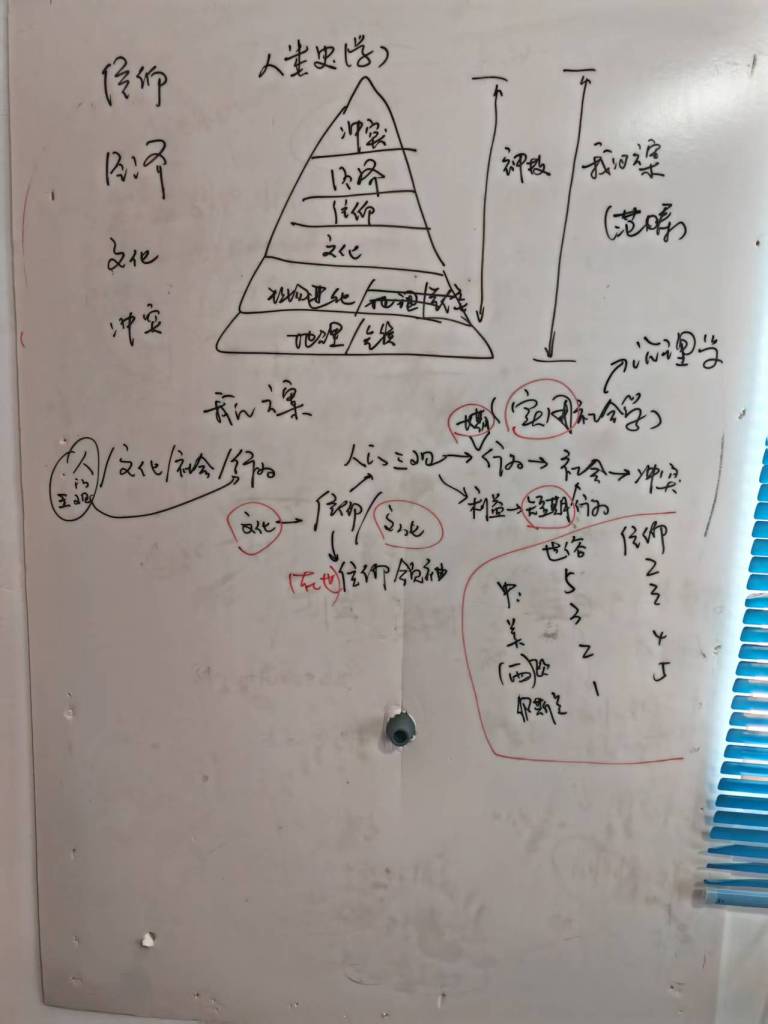 信仰
经济
文化
冲突
人类史(学)
冲突
经济
信仰
文化
进化/地理/气候
地理/气候
神教
我的方案
(范畴)
我的方案
人的三观/文化/社会/行为
文化→信仰/文化
(在世)信仰领袖
人的三观→行为→社会→冲突
长期(实用社会学)
→伦理学
利益→短期行为
世俗 信仰
中: 5 2
美 3 3
(西)欧 2 4
伊斯兰 1 5